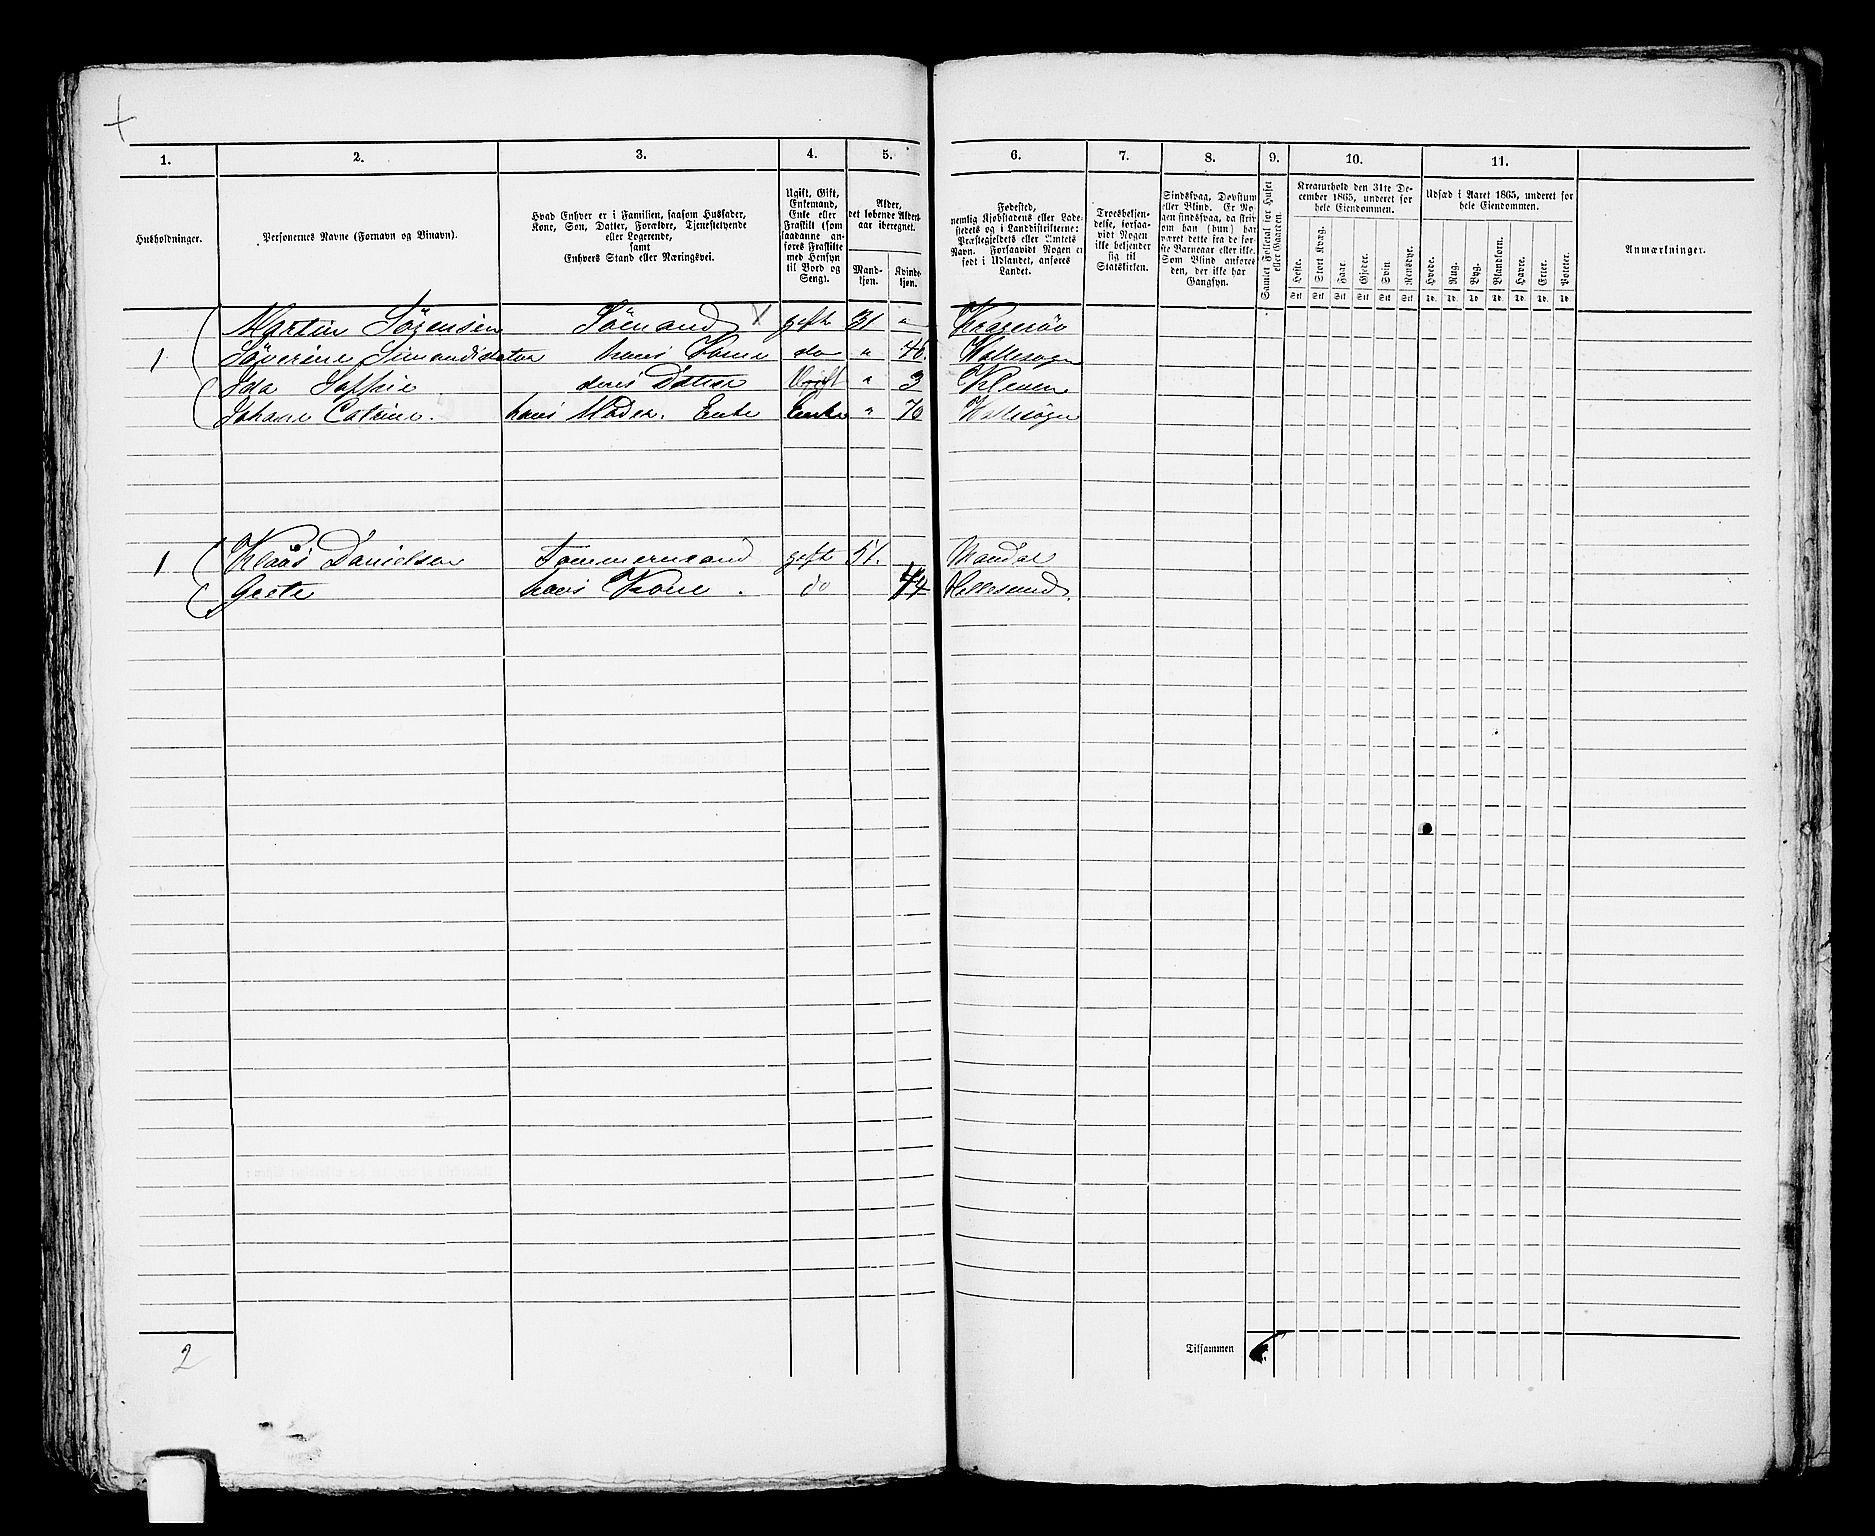 1. 2. 3. 4. 5. 6. 7. 8. 9. 10. 11.
Husholdninger.
Personernes Navne (Fornavn og Tilnavn).
Hvad Enhver er i Familien, saasom Husfader,
Kone, Søn, Datter, Forældre, Tjenestetyende
eller Logerende,
samt
Enhvers Stand eller Næringsvei.
Ugift, Gift,
Enkemand,
Enke eller
Fraskilt (som
saadanne an-
føres Fraskilte
med Hensyn
til Bord og
Seng).
Alder,
det løbende Alders-
aar iberegnet.
Mand-
kjøn.
Kvinde-
kjøn.
Fødested,
nemlig Kjøbstadens eller Lade-
stedets og i Landdistrikterne:
Præstegjeldets eller Amtets
Navn. Forsaavidt Nogen er
født i Udlandet, anføres
Landet.
Troesbekjen-
delse, forsaa-
vidt Nogen
ikke bekjender
sig til
Statskirken.
Sindssvag, Døvstum
eller Blind. Er No-
gen sindssvag, da skriv
om han (hun) har
været dette fra de før-
ste Barneaar eller ikke.
Som Blind anføres
den, der ikke har
Gangsyn.
Samlet Folketal for Huset
eller Gaarden.
Kreaturhold den 31te De-
cember 1865, underet for
hele Eiendommen.
Heste. Stort Kvæg. Faar. Gjeder. Svin. Rensdyr.
Stk Stk Stk Stk Stk Stk
Udsæd i Aaret 1865, underet for
hele Eiendommen.
Hvede. Rug. Byg. Blandkorn. Havre. Erter. Poteter.
Td. Td. Td. Td. Td. Td. Td.
Anmærkninger.
Martin Sørensen Sømand gift 31 " Kragerøe
1 Søverine hans Kone do " 46.
Ida Soffie deres Datter Ugift " 3 Kleven
Johane hans Moder. Enke Enke " 70
1 Klaus Danielsen Tømmermand gift 51. Mandal
Grete hans Kone. do 44 Hellesund.
2
Tilsammen